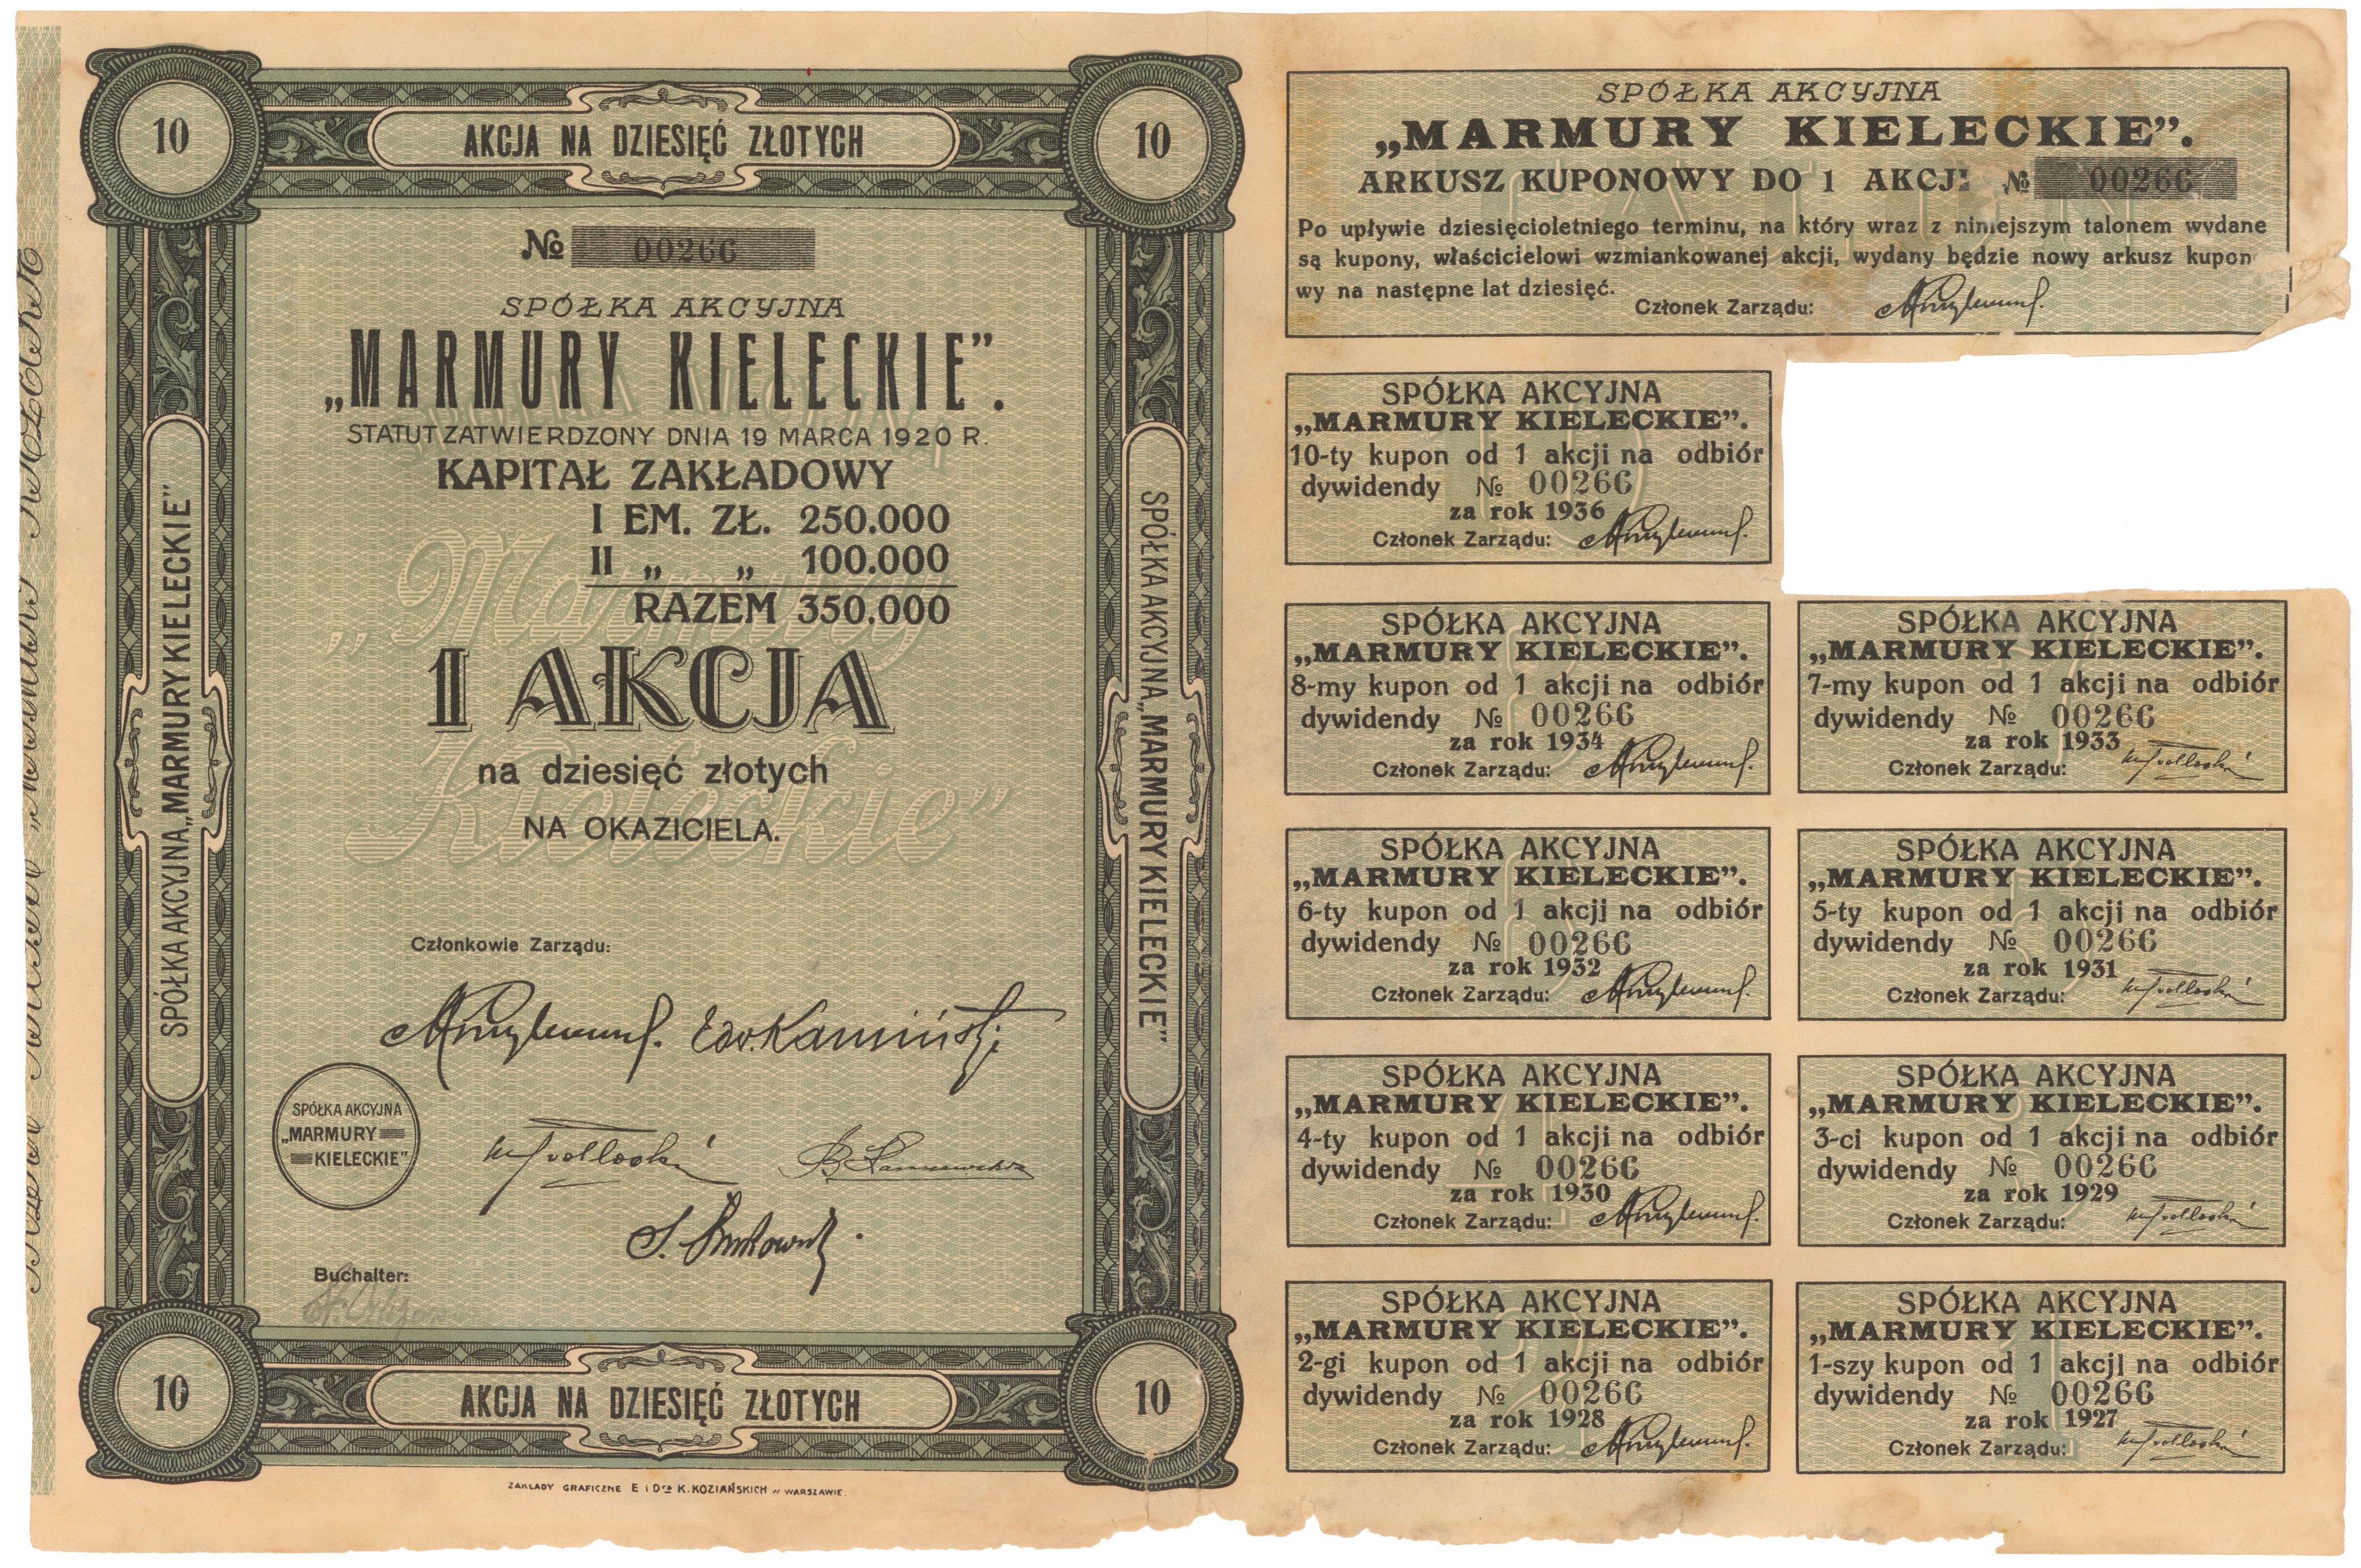 10
AKCJA NA DZIESIĘĆ ZŁOTYCH
10
№ 00266
SPÓŁKA AKCYJNA
„MARMURY KIELECKIE”.
STATUT ZATWIERDZONY DNIA 19 MARCA 1920 R.
KAPITAŁ ZAKŁADOWY
I EM. ZŁ. 250.000
II „ „ 100.000
RAZEM 350.000
1 AKCJA
na dziesięć złotych
NA OKAZICIELA.
„Marmury
Kieleckie”
SPÓŁKA AKCYJNA „MARMURY KIELECKIE”
SPÓŁKA AKCYJNA „MARMURY KIELECKIE”
Członkowie Zarządu:
Edw. Kamiński
SPÓŁKA AKCYJNA
„MARMURY
KIELECKIE”
Buchalter:
10
AKCJA NA DZIESIĘĆ ZŁOTYCH
10
ZAKŁADY GRAFICZNE E i Dra K. KOZIAŃSKICH w WARSZAWIE.
SPÓŁKA AKCYJNA
„MARMURY KIELECKIE”.
ARKUSZ KUPONOWY DO 1 AKCJI № 00266
Po upływie dziesięcioletniego terminu, na który wraz z niniejszym talonem wydane
są kupony, właścicielowi wzmiankowanej akcji, wydany będzie nowy arkusz kupon
wy na następne lat dziesięć.
Członek Zarządu:
SPÓŁKA AKCYJNA
„MARMURY KIELECKIE”.
10-ty kupon od 1 akcji na odbiór
dywidendy № 00266
za rok 1936
Członek Zarządu:
SPÓŁKA AKCYJNA
„MARMURY KIELECKIE”.
8-my kupon od 1 akcji na odbiór
dywidendy № 00266
za rok 1934
Członek Zarządu:
SPÓŁKA AKCYJNA
„MARMURY KIELECKIE”.
7-my kupon od 1 akcji na odbiór
dywidendy № 00266
za rok 1933
Członek Zarządu:
SPÓŁKA AKCYJNA
„MARMURY KIELECKIE”.
6-ty kupon od 1 akcji na odbiór
dywidendy № 00266
za rok 1932
Członek Zarządu:
SPÓŁKA AKCYJNA
„MARMURY KIELECKIE”.
5-ty kupon od 1 akcji na odbiór
dywidendy № 00266
za rok 1931
Członek Zarządu:
SPÓŁKA AKCYJNA
„MARMURY KIELECKIE”.
4-ty kupon od 1 akcji na odbiór
dywidendy № 00266
za rok 1930
Członek Zarządu:
SPÓŁKA AKCYJNA
„MARMURY KIELECKIE”.
3-ci kupon od 1 akcji na odbiór
dywidendy № 00266
za rok 1929
Członek Zarządu:
SPÓŁKA AKCYJNA
„MARMURY KIELECKIE”.
2-gi kupon od 1 akcji na odbiór
dywidendy № 00266
za rok 1928
Członek Zarządu:
SPÓŁKA AKCYJNA
„MARMURY KIELECKIE”.
1-szy kupon od 1 akcji na odbiór
dywidendy № 00266
za rok 1927
Członek Zarządu: